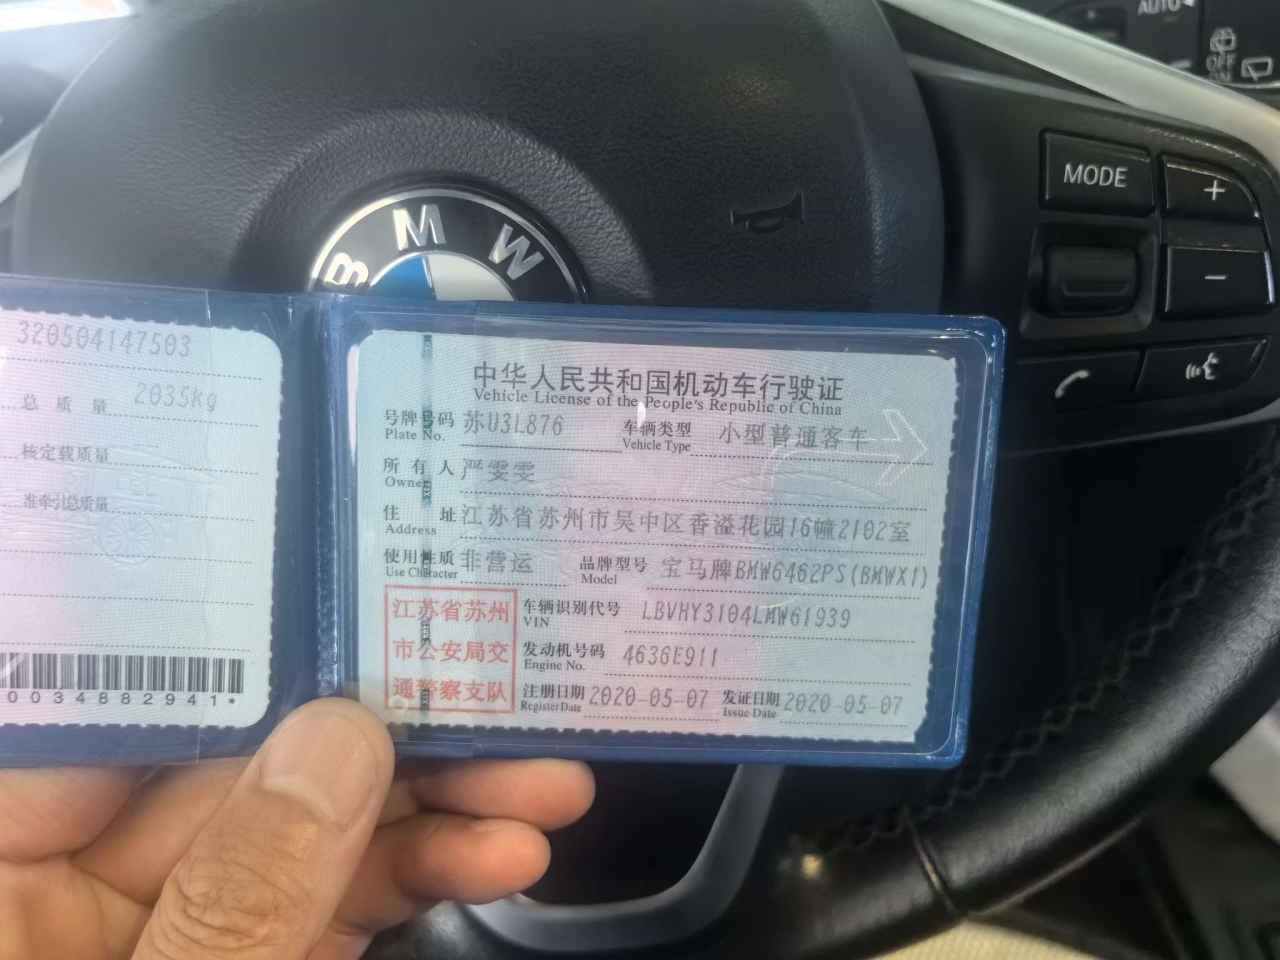 AUTO
OFF
ON
MODE
+
−
BMW
320504147503
总质量 2035kg
核定载质量
准牵引总质量
0034882941*
中华人民共和国机动车行驶证
Vehicle License of the People's Republic of China
号牌号码 苏U3L876 车辆类型 小型普通客车
Plate No. Vehicle Type
所有人 严雯雯
Owner
住址 江苏省苏州市吴中区香溢花园16幢2102室
Address
使用性质 非营运 品牌型号 宝马牌BMW6462PS(BMWX1)
Use Character Model
江苏省苏州
市公安局交
通警察支队
车辆识别代号 LBVHY3104LMW61939
VIN
发动机号码 4636E911
Engine No.
注册日期 2020-05-07 发证日期 2020-05-07
Register Date Issue Date